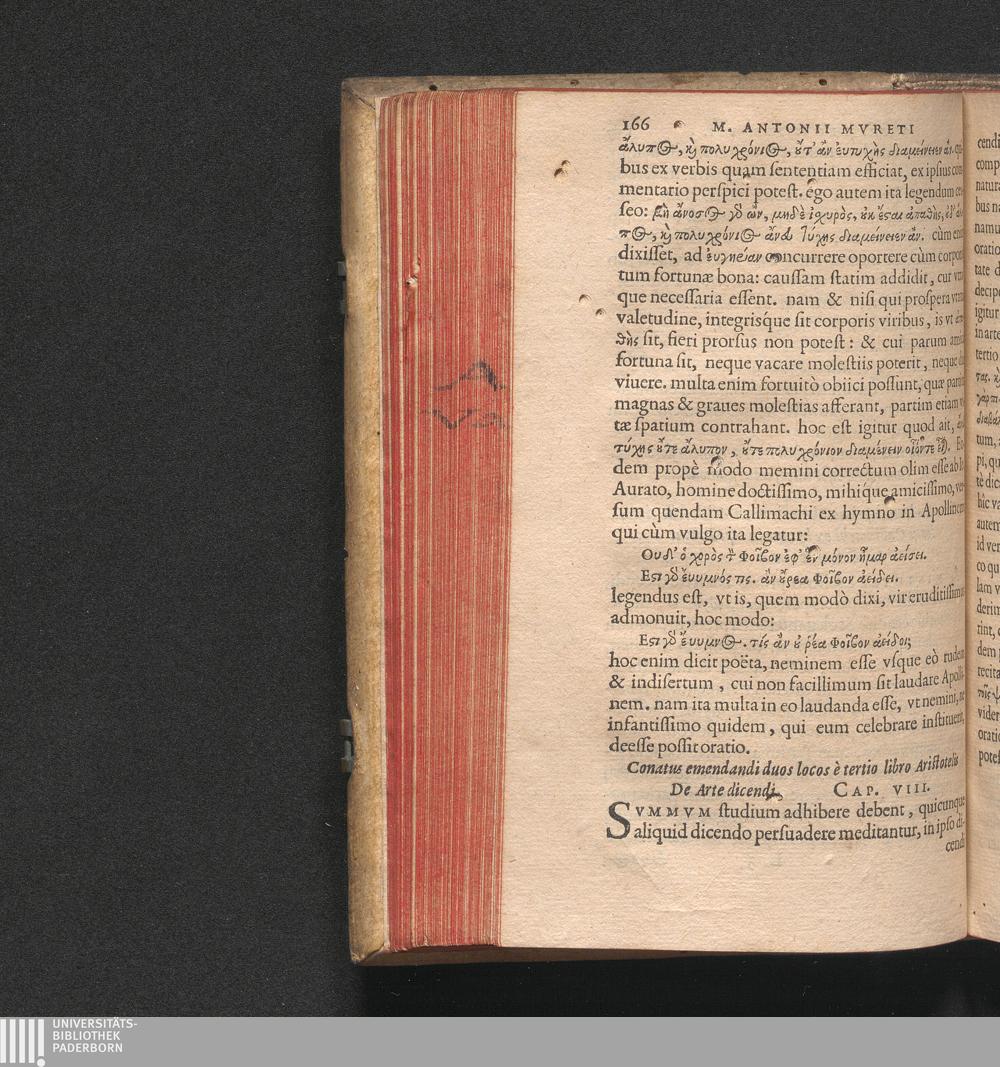 166 M. ANTONII MVRETI
ἄλυπος, καὶ πολυχρόνιος, οὔτ' ἂν εὐτυχὴς διαμείνειεν ἄν.
bus ex verbis quam sententiam efficiat, ex ipsius com
mentario perspici potest. ego autem ita legendum
seo: μὴ ἄνοσος γὸ ὢν, μηδὲ ἰχυρὸς, οὐκ ἔσαι ἀπαθὴς,
πος, καὶ πολυχρόνιος ἄνευ τύχης διαμείνειεν ἄν. cùm
dixisset, ad concurrere oportere cùm corpo
tum fortunæ bona: caussam statim addidit, cur
que necessaria essent. nam & nisi qui prospera
valetudine, integrisque sit corporis viribus, is vt
θὴς sit, fieri prorsus non potest: & cui parum
fortuna sit, neque vacare molestiis poterit, neque
viuere. multa enim fortuitò obiici possunt, quæ
magnas & graues molestias afferant, partim etiam
tæ spatium contrahant. hoc est igitur quod ait,
τύχης οὔτε ἄλυπον, οὔτε πολυχρόνιον διαμένειν οἷόν τε
dem propè modo memini correctum olim esse ab
Aurato, homine doctissimo, mihíque amicissimo,
sum quendam Callimachi ex hymno in Apollinem
qui cùm vulgo ita legatur:
Οὐδ' ὁ χορὸς τ Φοῖβον ἐφ' ἓν μόνον ἦμαρ ἀείσει.
Εστι γὸ εὔυμνός τις. ἂν οὔρεα Φοῖβον ἀείδει.
legendus est, vt is, quem modò dixi, vir eruditissimus
admonuit, hoc modo:
Εστι γὸ εὔυμνος. τίς ἂν οὐ ῥέα Φοῖβον ἀείδοι;
hoc enim dicit poëta, neminem esse vsque eò rudem
& indisertum, cui non facillimum sit laudare Apolli-
nem. nam ita multa in eo laudanda esse, vt nemini, ne
infantissimo quidem, qui eum celebrare instituerit,
deesse possit oratio.
Conatus emendandi duos locos è tertio libro Aristotelis
De Arte dicendi. CAP. VIII.
SVMMVM studium adhibere debent, quicunque
aliquid dicendo persuadere meditantur, in ipso di-
cendi
cendi
comp
natura
bus na
namu
oratio
tate d
decipe
igitur
in arte
tertio
tum,
pi, qu
tè dic
hîc va
autem
id ver
co qu
lam v
derim
rint,
dem
recita
vider
oratio
potest
UNIVERSITÄTS-
BIBLIOTHEK
PADERBORN